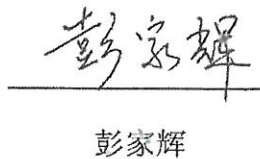 彭家辉
彭家辉